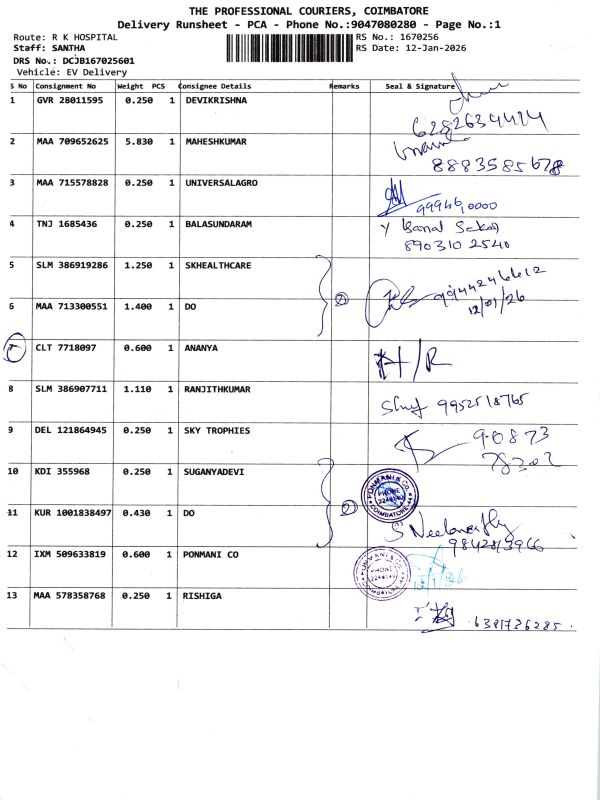 THE PROFESSIONAL COURIERS, COIMBATORE
Delivery Runsheet - PCA - Phone No.:9047080280 - Page No.:1
Route: R K HOSPITAL
Staff: SANTHA
RS No.: 1670256
RS Date: 12-Jan-2026
DRS No.: DCJB167025601
Vehicle: EV Delivery
S No Consignment No Weight PCS Consignee Details Remarks Seal & Signature
1 GVR 28011595 0.250 1 DEVIKRISHNA
6282634414
2 MAA 709652625 5.830 1 MAHESHKUMAR
8883585678
3 MAA 715578828 0.250 1 UNIVERSALAGRO
4 TNJ 1685436 0.250 1 BALASUNDARAM
8903102540
5 SLM 386919286 1.250 1 SKHEALTHCARE
6 MAA 713300551 1.400 1 DO
2
9944246612
12/01/26
7 CLT 7718097 0.600 1 ANANYA
H/R
8 SLM 386907711 1.110 1 RANJITHKUMAR
9952518765
9 DEL 121864945 0.250 1 SKY TROPHIES
90873
78302
10 KDI 355968 0.250 1 SUGANYADEVI
PONMANI & CO
PHONE
COIMBATORE
11 KUR 1001838497 0.430 1 DO
2
12 IXM 509633819 0.600 1 PONMANI CO
PONMANI & CO
PHONE
COIMBATORE
13 MAA 578358768 0.250 1 RISHIGA
6381736285